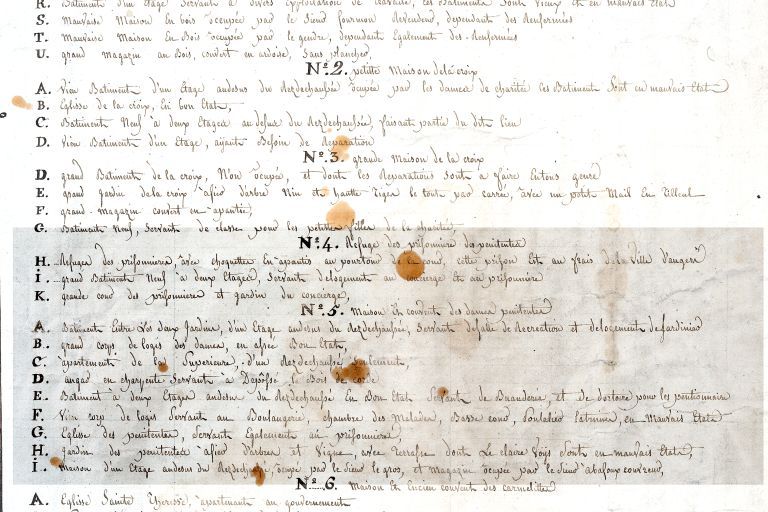 R. Batiment d'un Etage Servant a divers Exploitation de travaile, ces Batiments Sont Vieux Et en mauvais Etat
S. Mauvaise Maison En bois ocupée par le Sieur fourmon Revendeur, dependant des Renfermées
T. Mauvaise Maison En Bois ocupée par le gendre, dependant Egalement des Renfermées
U. grand magazin au Bois, couvert en ardoise, Sans planches,
N.° 2. petitte Maison dela croix
A. Vieu Batiment d'un Etage audesus du Rezdechaussée ocupée par les dames de charitée ces Batiment Sont en mauvais Etat
B. Eglisse de la croix, En bon Etat,
C. Batiment Neuf a deux Etages audesus du Rezdechaussée, faisant partie du dit lieu
D. Vieu Batiment d'un Etage, aiyant Besoin de Reparation
N.° 3. grande Maison de la croix
D. grand Batiment de la croix, Non ocupée, et dont les Reparations Sont a faire Entous genre
E. grand Jardin dela croix afie d'arbre Nin et haute tiges le tout par carrée, avec un potit Mail En tilleul
F. grand magazin couvert en apantie,
G. Batiment Neuf, Servant de classe pour les petittes filles de la charitée,
N.° 4. Refuge des prisonniere des penitentes
H. Refuges des prisonnieres, avec choguettes En apantis au pourtour de la cour, cette prison Est au frais dela Ville d'angers
i. grand Batiment Neuf a deux Etages, Servant delogement au concierge Et au prisonniere
K. grande cour des prisonniere et Jardin du concierge,
N.° 5. Maison Et couvent des dames penitentes
A. Batiment Entre Les deux Jardin, d'un Etage audesus du Rezdechaussée, Servant desale de Recreation et delogement de Jardinier
B. grand corps de logis des dames, en assée Bon Etat,
C. apartement de la Superieure, d'un Rezdechaussée Seulement,
D. angar en charpente Servant a Deposser le Bois de corde
E. Batiment a deux Etages audesu du Rezdechaussée En Bon Etat Servant de Buanderie, et de dortoire pour les pentionnaire
F. Vieu corp de logis Servant au Boulangerie, chambre des Malades, Basse cour, Poulalier latrinne, en Mauvais Etat
G. Eglise des penitentes, Servant Egalement au prisonniere,
H. Jardin des penitentes afiée d'arbres et Vigne, avec terrasse dont Le claire Voiys Sont en mauvais Etats,
i. Maison d'un Etage audesus du Rezdechaussée ocupée par le Sieur le gros, et magazin ocupée par le Sieur abafour couvreur,
N.° 6. Maison Et Encien couvent des carmelittes
A. Eglise Sainte Theresse, apartenant au gouvernement